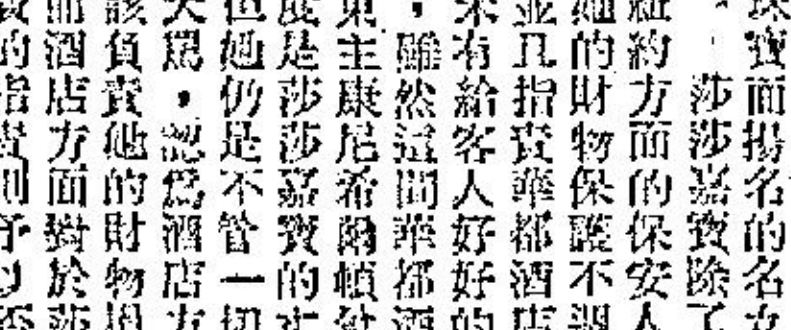 寶面揚名的名女
莎莎嘉寶除了
紐約方面的保安人
她的財物保護不週
並且指責華都酒店
未有給客人好好的
，雖然這間華都酒
東主康尼希爾頓
度是莎莎嘉寶的丈
但她仍是不管一切
大罵，認爲酒店方
該負責她的財物損
而酒店方面對於莎
寶的指責則予以否